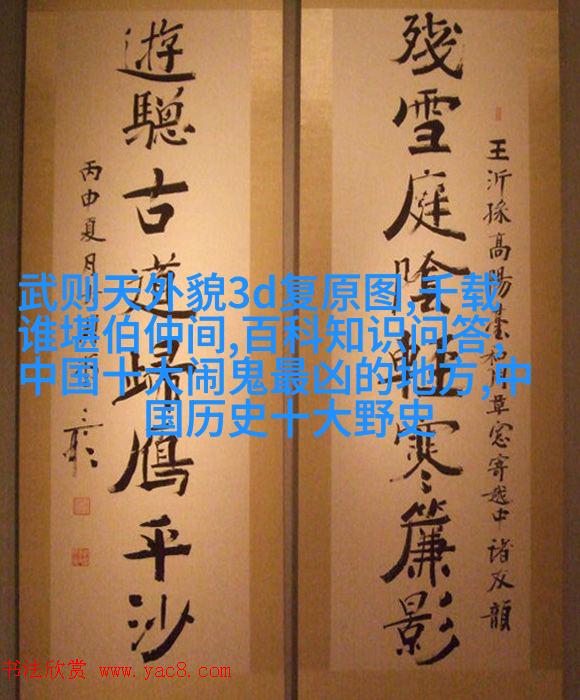 王沂孫高陽臺和周草窗寄越中諸友韻
殘雪庭陰輕寒簾影
遊驄古道歸鴈平沙
丙申夏月
武则天外貌3d复原图,千载
谁堪伯仲间,百科知识问答,
中国十大闹鬼最凶的地方,中
国历史十大野史
书法欣赏 www.yac8.com